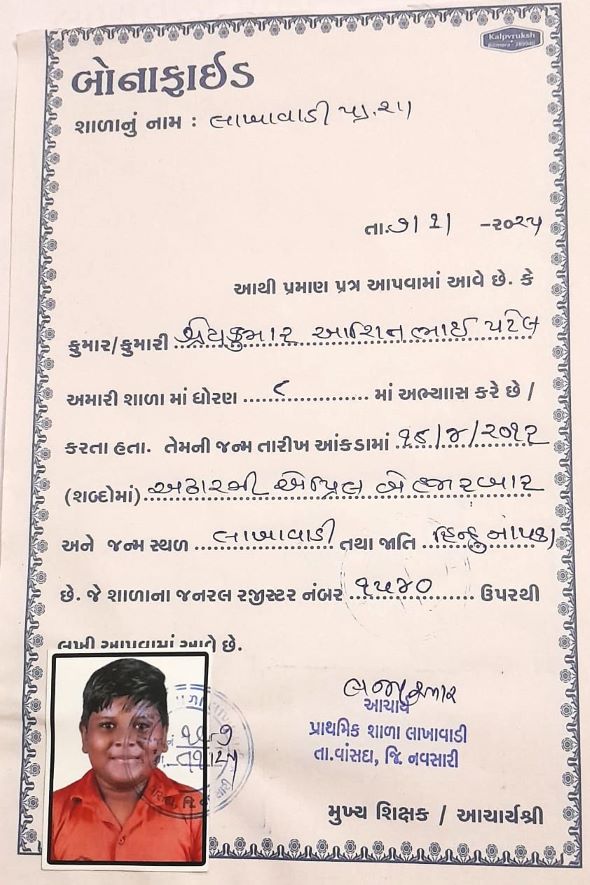 Kalpvruksh
બોનાફાઈડ
શાળાનું નામ : લાખાવાડી પ્રા.શા
તા.૭/ ૨/ -૨૦૨૫
આથી પ્રમાણ પત્ર આપવામાં આવે છે. કે
કુમાર/કુમારી શ્રેયકુમાર આશિનભાઈ પટેલ
અમારી શાળા માં ધોરણ ૮ માં અભ્યાાસ કરે છે /
કરતા હતા. તેમની જન્મ તારીખ આંકડામાં ૧૮/૪/૨૦૧૨
(શબ્દોમાં) અઢારમી એપ્રિલ બે હજાર બાર
અને જન્મ સ્થળ લાખાવાડી તથા જાતિ હિન્દુ નાયકા
છે. જે શાળાના જનરલ રજીસ્ટર નંબર ૧૫૪૦ ઉપરથી
લખી આપવામાં આવે છે.
આચાર્ય
પ્રાથમિક શાળા લાખાવાડી
તા.વાંસદા, જિ. નવસારી
મુખ્ય શિક્ષક / આચાર્યશ્રી